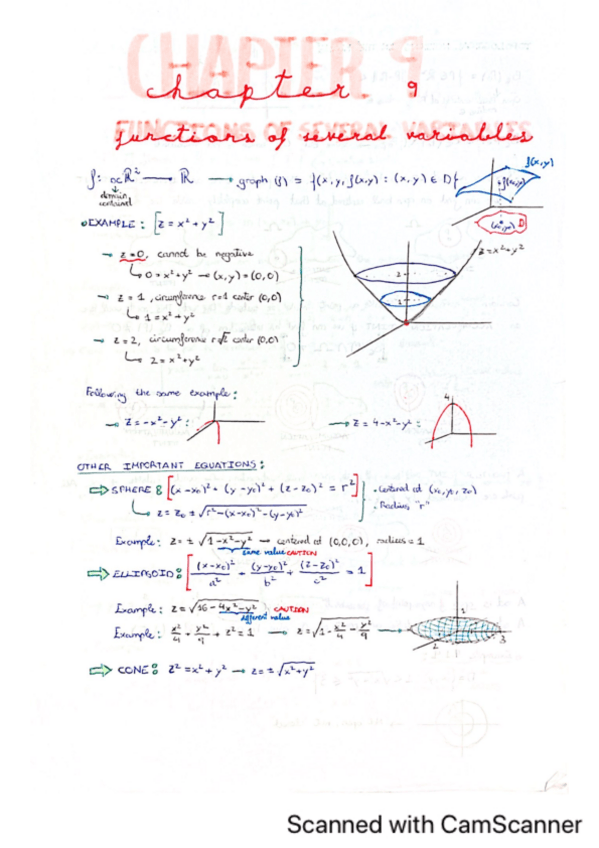 CHAPTER 9
chapter 9
FUNCTIONS OF SEVERAL VARIABLES
functions of several variables
f: D⊂ℝ² → ℝ → graph (f) = {(x,y, f(x,y) : (x,y) ∈ D}
domain
contained
f(x,y)
f(x,y)
(x,y) D
• EXAMPLE: [z = x² + y²]
z = x² + y²
→ z=0, cannot be negative
↳ 0 = x² + y² → (x,y) = (0,0)
→ z = 1, circumference r=1 center (0,0)
↳ 1 = x² + y²
→ z = 2, circumference r=√2 center (0,0)
↳ 2 = x² + y²
2
1
Following the same example:
→ z = -x² - y² :
→ z = 4 - x² - y² :
4
OTHER IMPORTANT EQUATIONS:
⇒ SPHERE: [(x - x₀)² + (y - y₀)² + (z - z₀)² = r²]
• Centered at (x₀, y₀, z₀)
• Radius "r"
↳ z = z₀ ± √r² - (x-x₀)² - (y-y₀)²
Example: z = ± √1 - x² - y² → centered at (0,0,0), radius = 1
same value CAUTION
⇒ ELLIPSOID: [(x-x₀)²/a² + (y-y₀)²/b² + (z-z₀)²/c² = 1]
Example: z = √16 - 4x² - y² CAUTION
different value
Example: x²/4 + y²/9 + z² = 1 → z = √1 - x²/4 - y²/9 →
2
3
⇒ CONE: z² = x² + y² → z = ± √x² + y²
Scanned with CamScanner